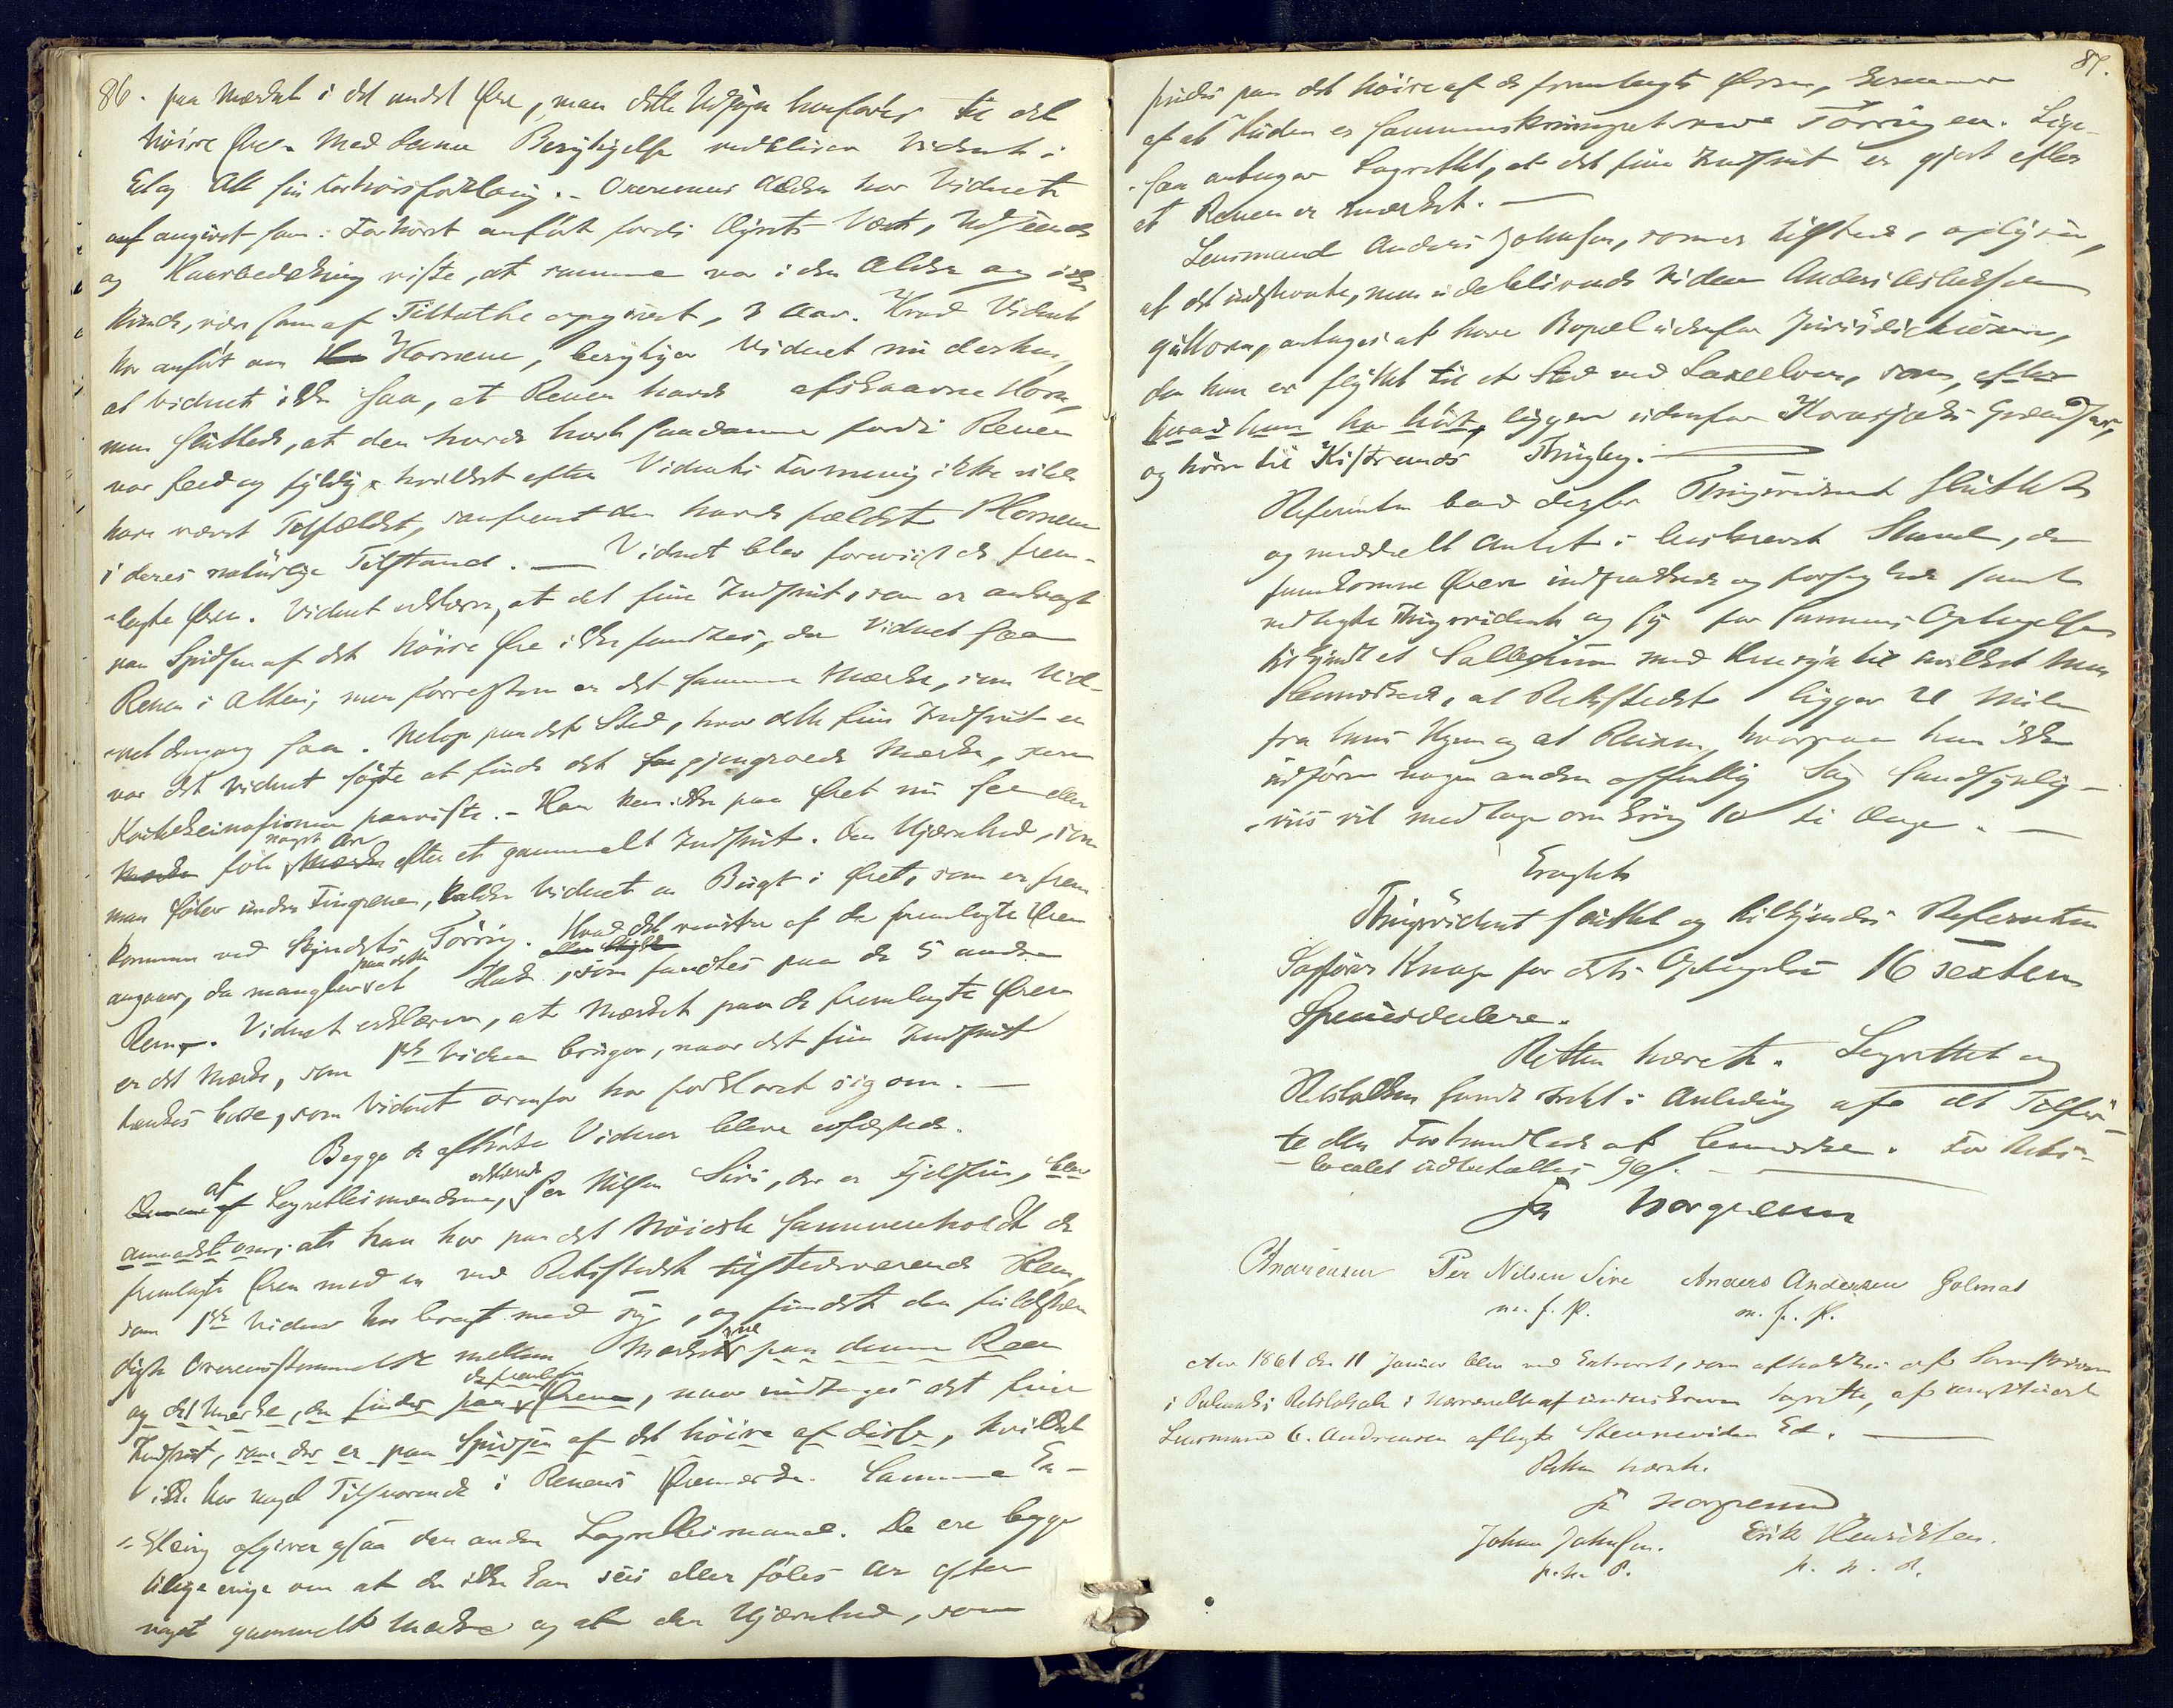 86. paa Mærket i det andet Øre, men dette Udsagn henføres til det
høire Øre. Med denne Berigtigelse vedbliver Vidnet i
Et og Alt sin Forhørsforklaring. - Renens Alder har Vidnet
angivet som i Forhøret anført fordi Dyrets Vext, Udseende
og Haarbedækning viste, at samme var i den Alder og ikke
kunde, som af Tiltalte opgivet, 3 Aar. Hvad Vidnet
har anført om Hornene, berigtiger Vidnet nu derhen,
at Vidnet ikke saa, at Renen havde afskaarne Horn,
men sluttede, at den havde havt saadanne fordi Renen
var feed og fyldig, hvilket efter Vidnets Formening ikke vilde
have været Tilfældet, saafremt den havde fældet Hornene
i deres naturlige Tilstand. — Vidnet blev foreviist de frem-
lagte Øren. Vidnet erklærer, at det fine Indsnit, som er anbragt
paa Spidsen af det høire Øre ikke fandtes, da Vidnet saa
Renen i Alten; men forresten er det samme Mærke, som Vid-
net dengang saa. Netop paa det Sted, hvor dette fine Indsnit er
var det Vidnet søgte at finde det gjengroede Mærke, som
Kautokeinofinnen paaviste. - Han kan ikke paa Øret nu see eller
føle noget Ar efter et gammelt Indsnit. Den Ujævnhed, som
man føler under Fingrene, kalder Vidnet en Bugt i Øret, som er frem
kommen ved Skindets Tørring. Hvad det venstre af de fremlagte Øren
angaaer, da mangler paa dette et Hak, som fandtes paa de 5 andre
Rener. Vidnet erklærer, at Mærket paa de fremlagte Øren
er det Mærke, som 1ste Vidne bruger, naar det fine Indsnit
tænkes borte, som Vidnet ovenfor har forklaret sig om. —
Begge de afhørte Vidner bleve edfæstede.
af Lagrettesmændene, erklærede Per Nilsen Siri, der er Fjeldfin,
at han har paa det Nøieste sammenholdt de
fremlagte Øren med en ved Retsstedet tilstedeværende Ren,
som 1ste Vidne har bragt med sig, og fundet den fuldstæn
digste Overensstemmelse mellem Mærkerne paa denne Reen
og det Mærke, der findes paa de fremlagte Øren, naar undtages det fine
Indsnit, som der er paa Spidsen af det høire af disse, hvilket
ikke har noget Tilsvarende i Renens Øremærke. Samme Er-
klæring afgiver ogsaa den anden Lagrettesmand. De ere begge
tillige enige om at der ikke kan sees eller føles Ar efter
noget gammelt Mærke og at den Ujævnhed, som
87.
findes paa det høire af de fremlagte Øren, kommer
af at Huden er sammenskrumpet ved Tørringen. Lige-
saa antager Lagrettet, at det fine Indsnit er gjort efter
at Renen er mærket. —
Lensmand Anders Johnsen, som er tilstede, oplyser,
at det indstevnte, men udeblivende Vidne Anders Aslaksen
Guttorm, antages at have Bopæl udenfor Jurisdictionen,
da han er flyttet til et Sted ved Laxeelven, som, efter
hvad han har hørt, ligger udenfor Karasjoks Grændser,
og hører til Kistrands Thinglag. —
Referenten bad derfor Thingsvidnet sluttet
og meddeelt Antet i beskreven Stand, de
fremkomne Øren indpakkede og forseglede samt
vedlagte Thingsvidnet og sig for Sammes Optagelse
tilkjendt et Sallarium med Hensyn til hvilket han
bemærkede, at Retsstedet ligger 21 Mile
fra hans Hjem og at Reisen, hvorpaa han ikke
udfører nogen anden offentlig Sag sandsynlig-
viis vil medtage omkring 10 ti Dage. —
Eragtet
Thingsvidnet sluttet og tilkjendes Referenten
Sagfører Knap for dets Optagelse 16 sexten
Speciedalere.
Retten hævet. Lagrettet og
Retslokalet fandt intet i Anledning af det Tilfør-
te eller Forhandlede at bemærke. For Rets-
localet udbetaltes
Norgreenn
CAndreasen Per Nilsen Sire Anders Andersen Golmas
m. f. P. m. f. P.
Aar 1861 den 11 Januar blev ved Extraret, som afholdtes af Sorenskriveren
i Polmak i Retslokalet i Nærværelse af underskrevne Lagrette, af constitueret
Lensmand C. Andreasen aflagt Stevnevidne Ed. —
Retten hævet.
Norgreenn
Johan Johnsen. Erik Henriksen.
p. n. P. p. n. P.